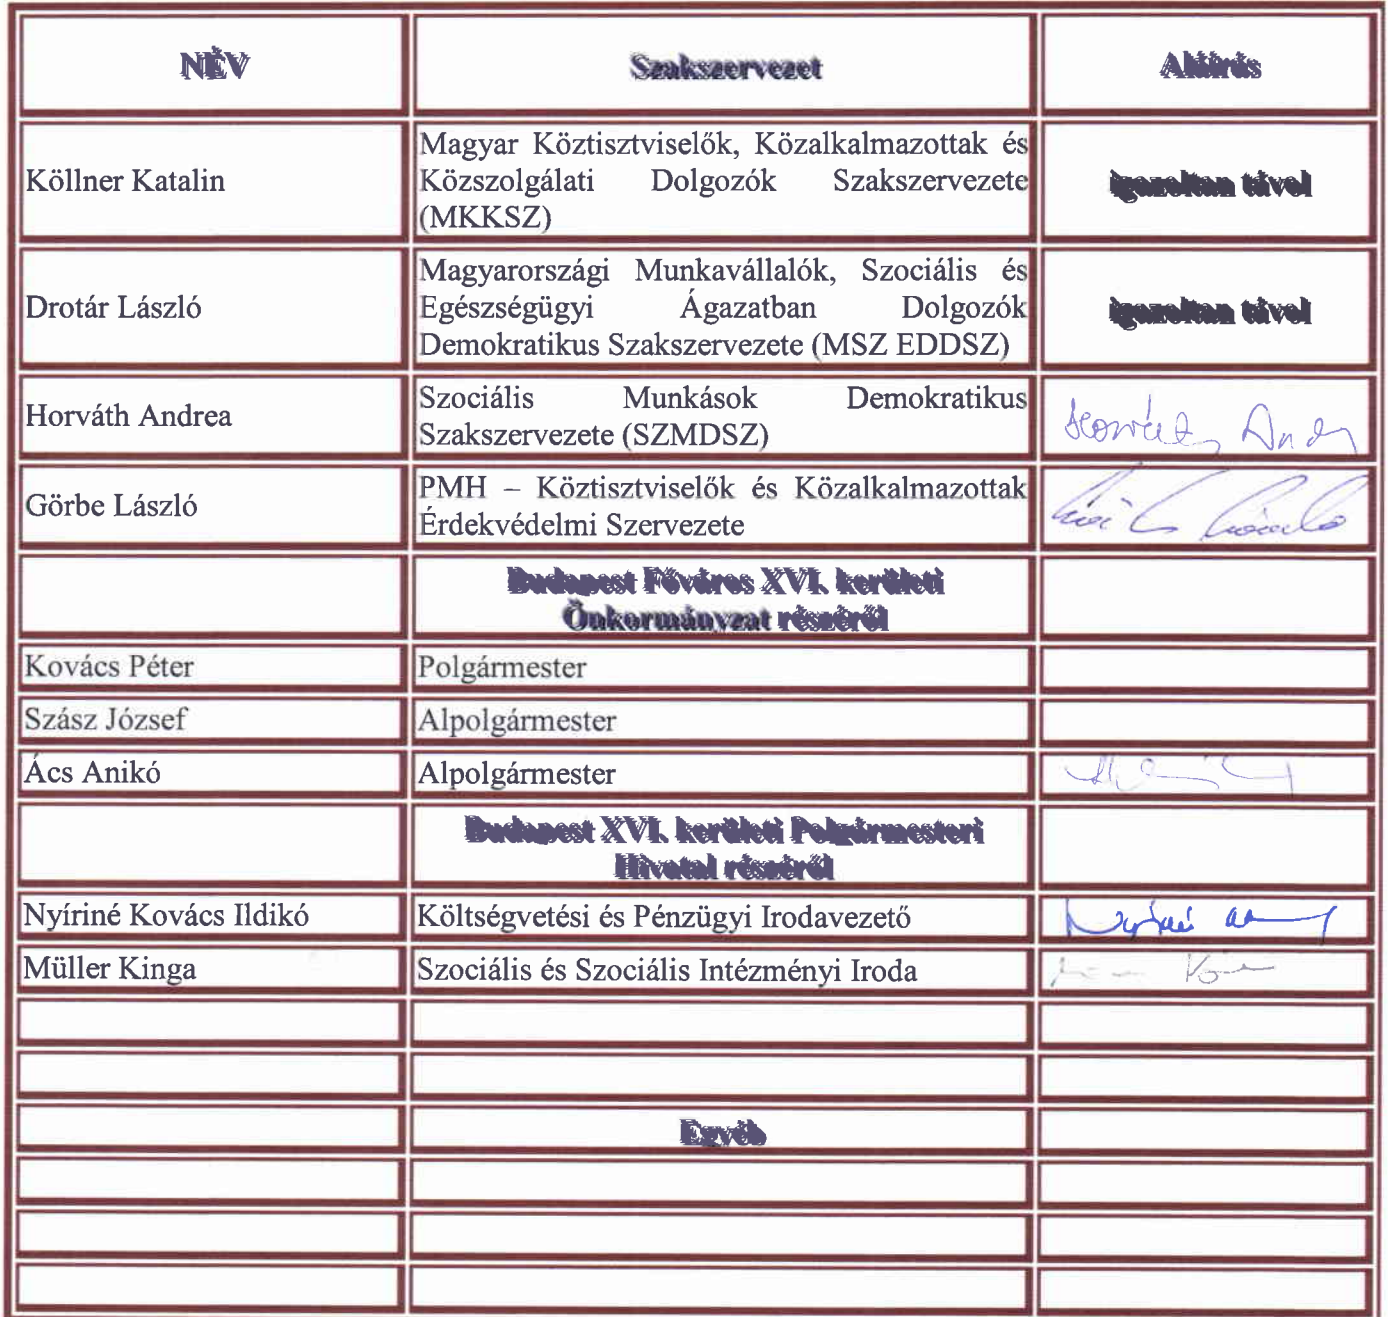 NÉV
Szakszervezet
Aláírás
Köllner Katalin
Magyar Köztisztviselők, Közalkalmazottak és
Közszolgálati Dolgozók Szakszervezete
(MKKSZ)
igazoltan távol
Drotár László
Magyarországi Munkavállalók, Szociális és
Egészségügyi Ágazatban Dolgozók
Demokratikus Szakszervezete (MSZ EDDSZ)
igazoltan távol
Horváth Andrea
Szociális Munkások Demokratikus
Szakszervezete (SZMDSZ)
Görbe László
PMH – Köztisztviselők és Közalkalmazottak
Érdekvédelmi Szervezete
Budapest Főváros XVI. kerületi
Önkormányzat részéről
Kovács Péter
Polgármester
Szász József
Alpolgármester
Ács Anikó
Alpolgármester
Budapest XVI. kerületi Polgármesteri
Hivatal részéről
Nyíriné Kovács Ildikó
Költségvetési és Pénzügyi Irodavezető
Müller Kinga
Szociális és Szociális Intézményi Iroda
Egyéb